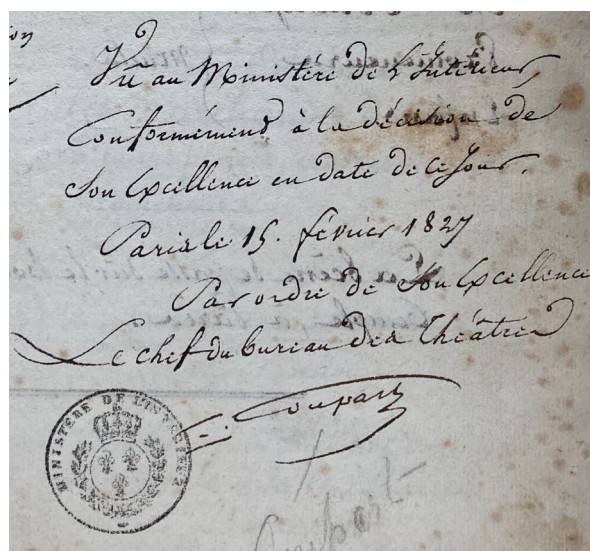 Vu au Ministère de l'Intérieur,
Conformément à la décision de
Son Excellence en date de ce Jour.
Paris le 15. février 1827
Par ordre de Son Excellence
Le chef du bureau des Théâtres
Coupart
MINISTÈRE DE L'INTÉRIEUR
Coupart